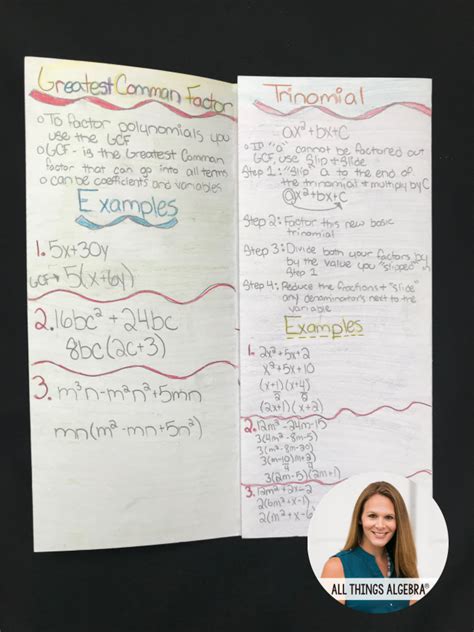 Greatest Comman Factor
o To factor polynomials you
use the GCF
o GCF - is the Greatest Comman
factor that can go into all terms
o can be coefficients and variables
Examples
1. 5x+30y
GCF→ 5(x+6y)
2. 16bc² + 24bc
8bc(2c+3)
3. m³n - m²n² + 5mn
mn(m² - mn + 5n²)
Trinomial
ax²+bx+C
o If "a" cannot be factored out
GCF, use Slip & Slide
Step 1: "Slip" a to the end of
the trinomial & multiply by C
ax²+bx+C
Step 2: Factor this new basic
trinomial
Step 3: Divide both your factors by
by the value you "slipped" in
Step 1
Step 4: Reduce the fractions + "slide"
any denominators next to the
variable
Examples
1. 2x²+5x+2
x²+5x+10
(x+1)(x+4)
2 2
(2x+1)(x+2)
2. 12m² - 24m - 15
3(4m² - 8m - 5)
3(m² - 8m - 20)
3(m-10)(m+2)
3(2m-5)(2m+1)
3. 12m² + 2x - 2
2(6m² + x - 1)
2(m² + x - 6)
ALL THINGS ALGEBRA®